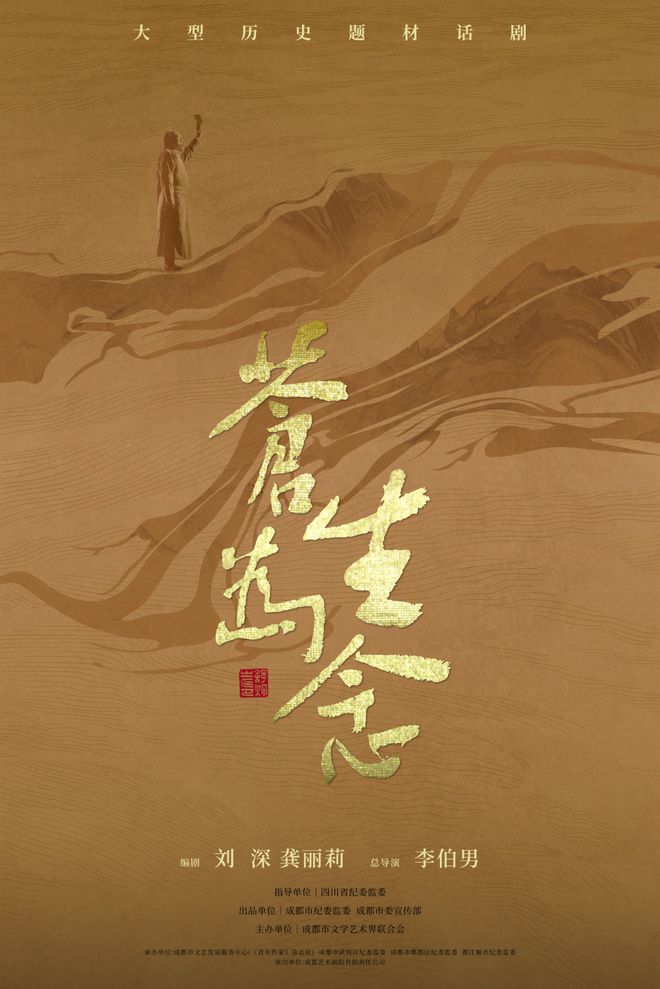 大型历史题材话剧
蒼生為念
编剧 刘深 龚丽莉 总导演 李伯男
指导单位｜四川省纪委监委
出品单位｜成都市纪委监委 成都市委宣传部
主办单位｜成都市文学艺术界联合会
承办单位:成都市文艺发展服务中心(《青年作家》杂志社) 成都市武侯区纪委监委 成都市郫都区纪委监委 都江堰市纪委监委
演出单位:成都艺术剧院有限责任公司